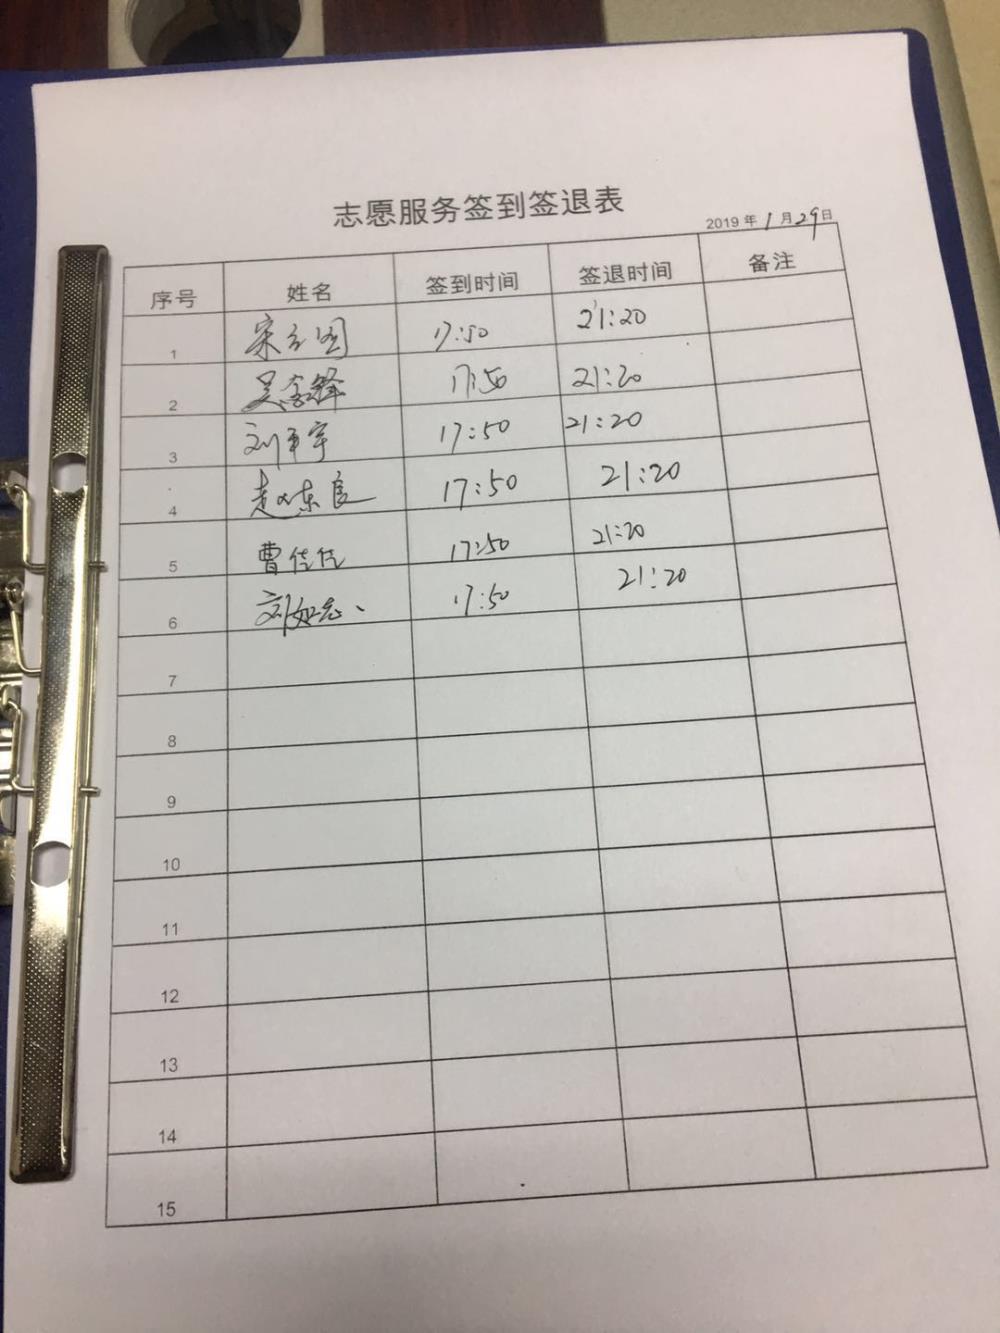 志愿服务签到签退表
2019 年 1 月 29 日
序号 姓名 签到时间 签退时间 备注
1 宋立国 17:50 21:20
2 吴 17:50 21:20
3 刘宇 17:50 21:20
4 赵晓东良 17:50 21:20
5 曹佳佳 17:50 21:20
6 刘如志 17:50 21:20
7
8
9
10
11
12
13
14
15